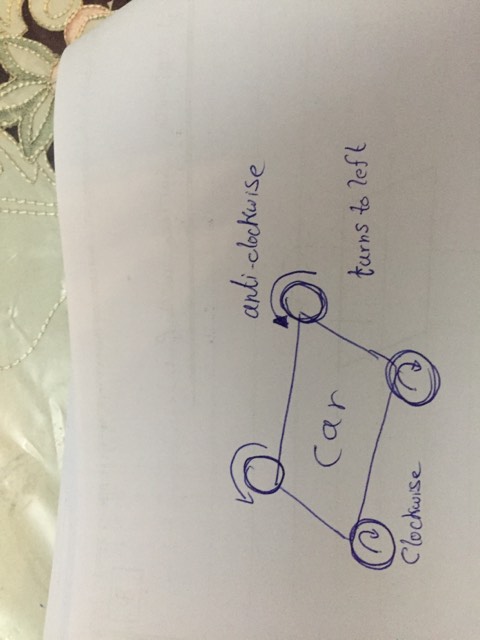 anti-clockwise
Car
turns to left
Clockwise